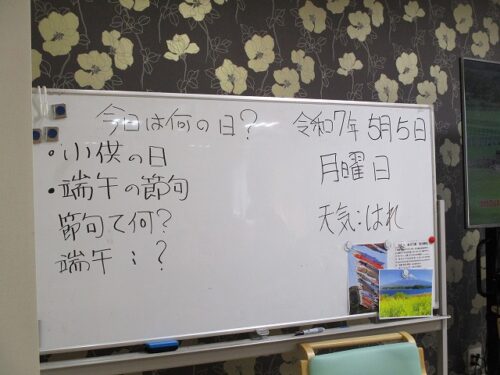 今日は何の日？
・小供の日
・端午の節句
節句て何？
端午：？
令和7年 5月5日
月曜日
天気：はれ